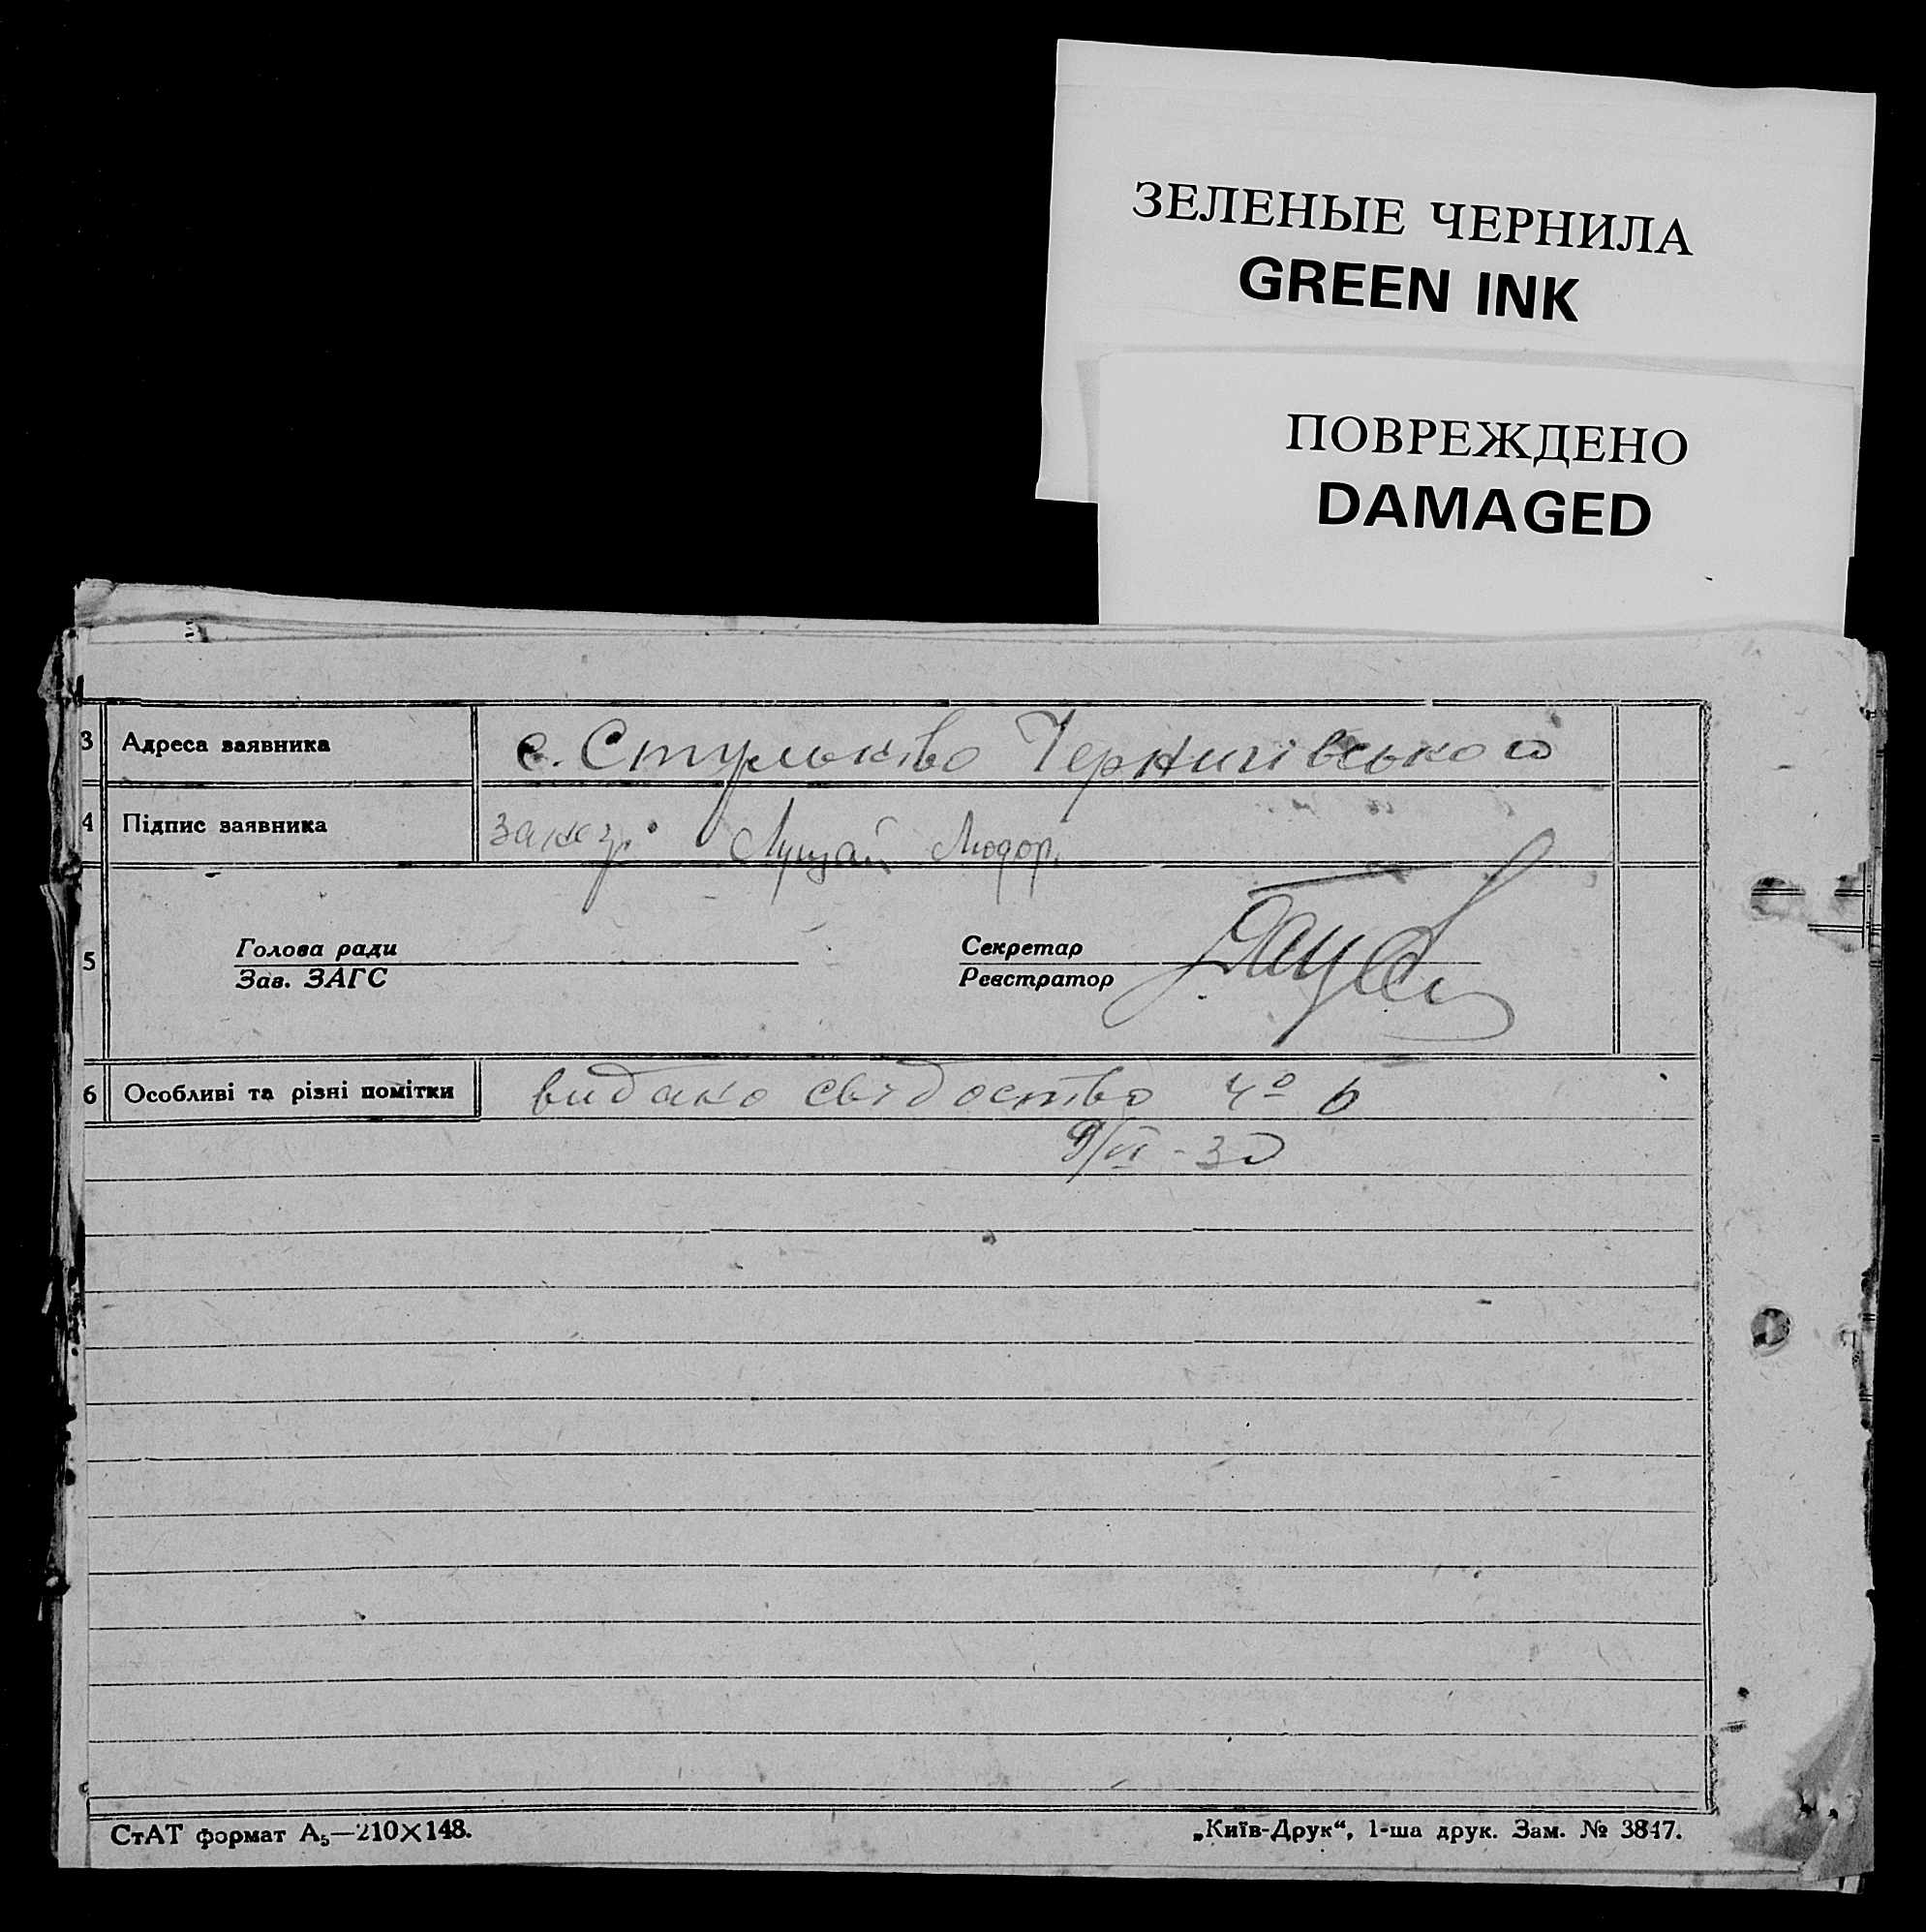 ЗЕЛЕНЫЕ ЧЕРНИЛА
GREEN INK
ПОВРЕЖДЕНО
DAMAGED
3 Адреса заявника с. Стульківо
4 Підпис заявника
Голова ради Секретар
5
Зав. ЗАГС Реєстратор
6 Особливі та різні помітки видано свідоство № 6
9/VI - 30
СтАТ формат А₅—210×148. „Київ-Друк“, 1-ша друк. Зам. № 3847.